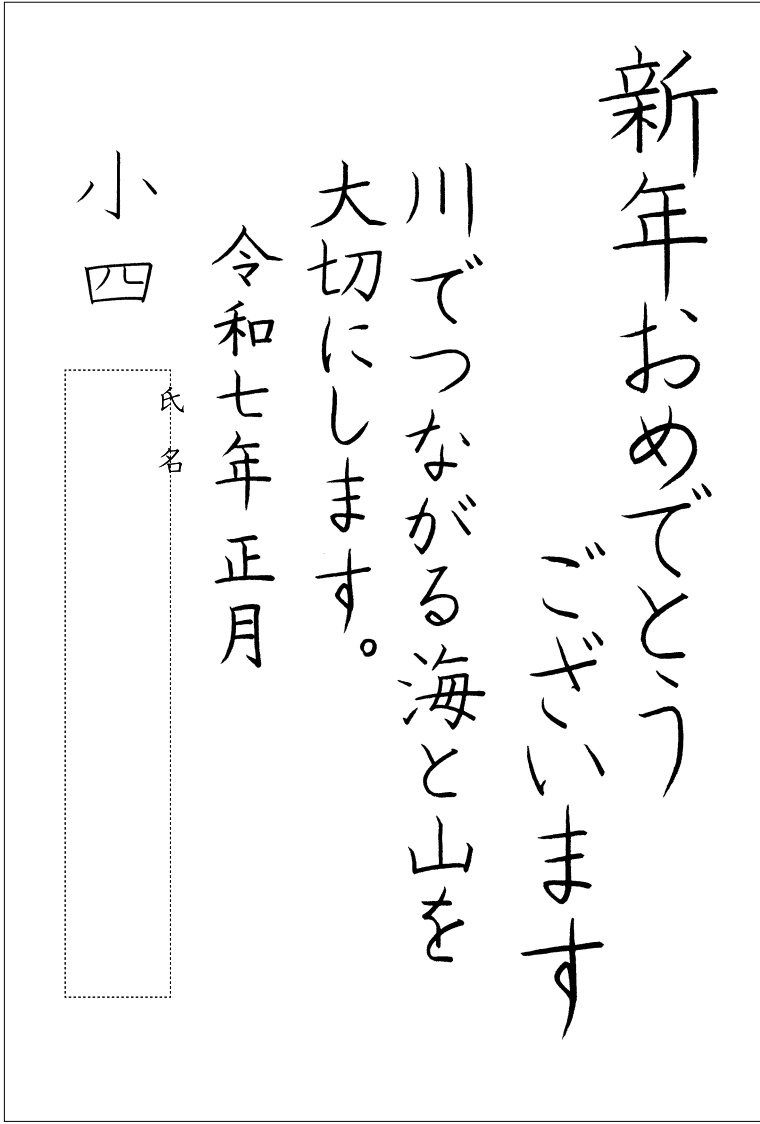 新年おめでとう
ございます
川でつながる海と山を
大切にします。
令和七年 正月
小四
氏名